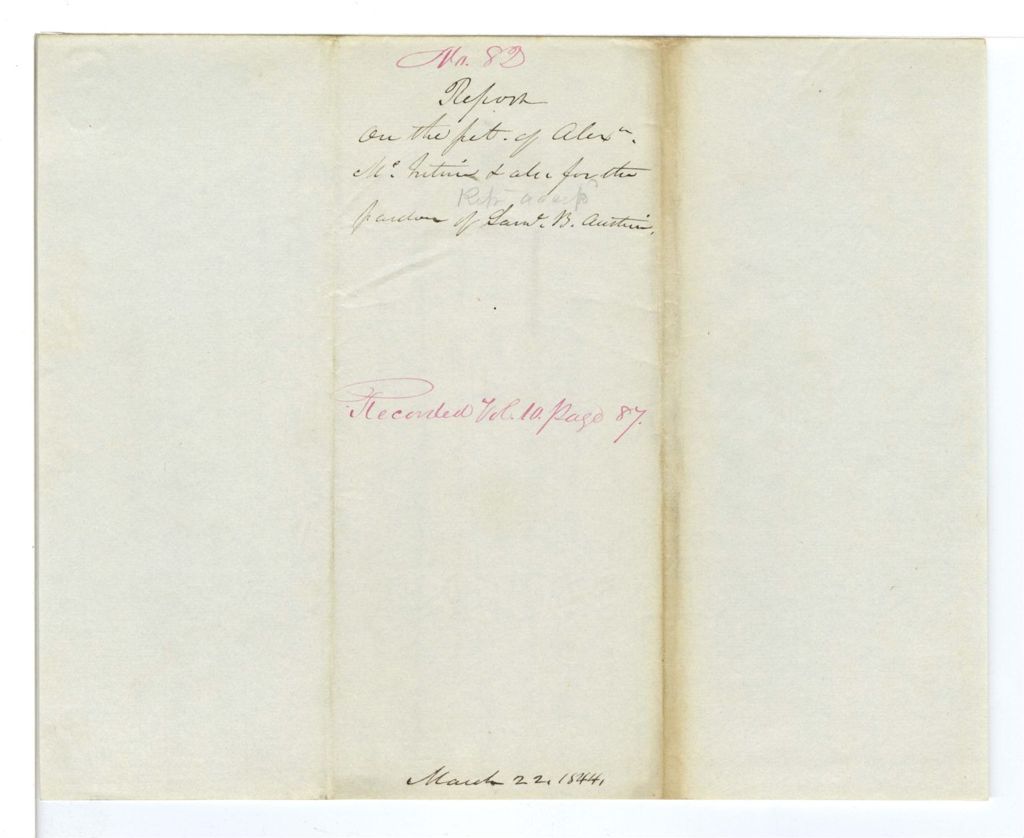 No. 82
Report
on the pet. of Alexr.
Mc. & als. for the
pardon of Saml. B. Austin.
Recorded Vol. 10. Page 87.
March 22. 1844.